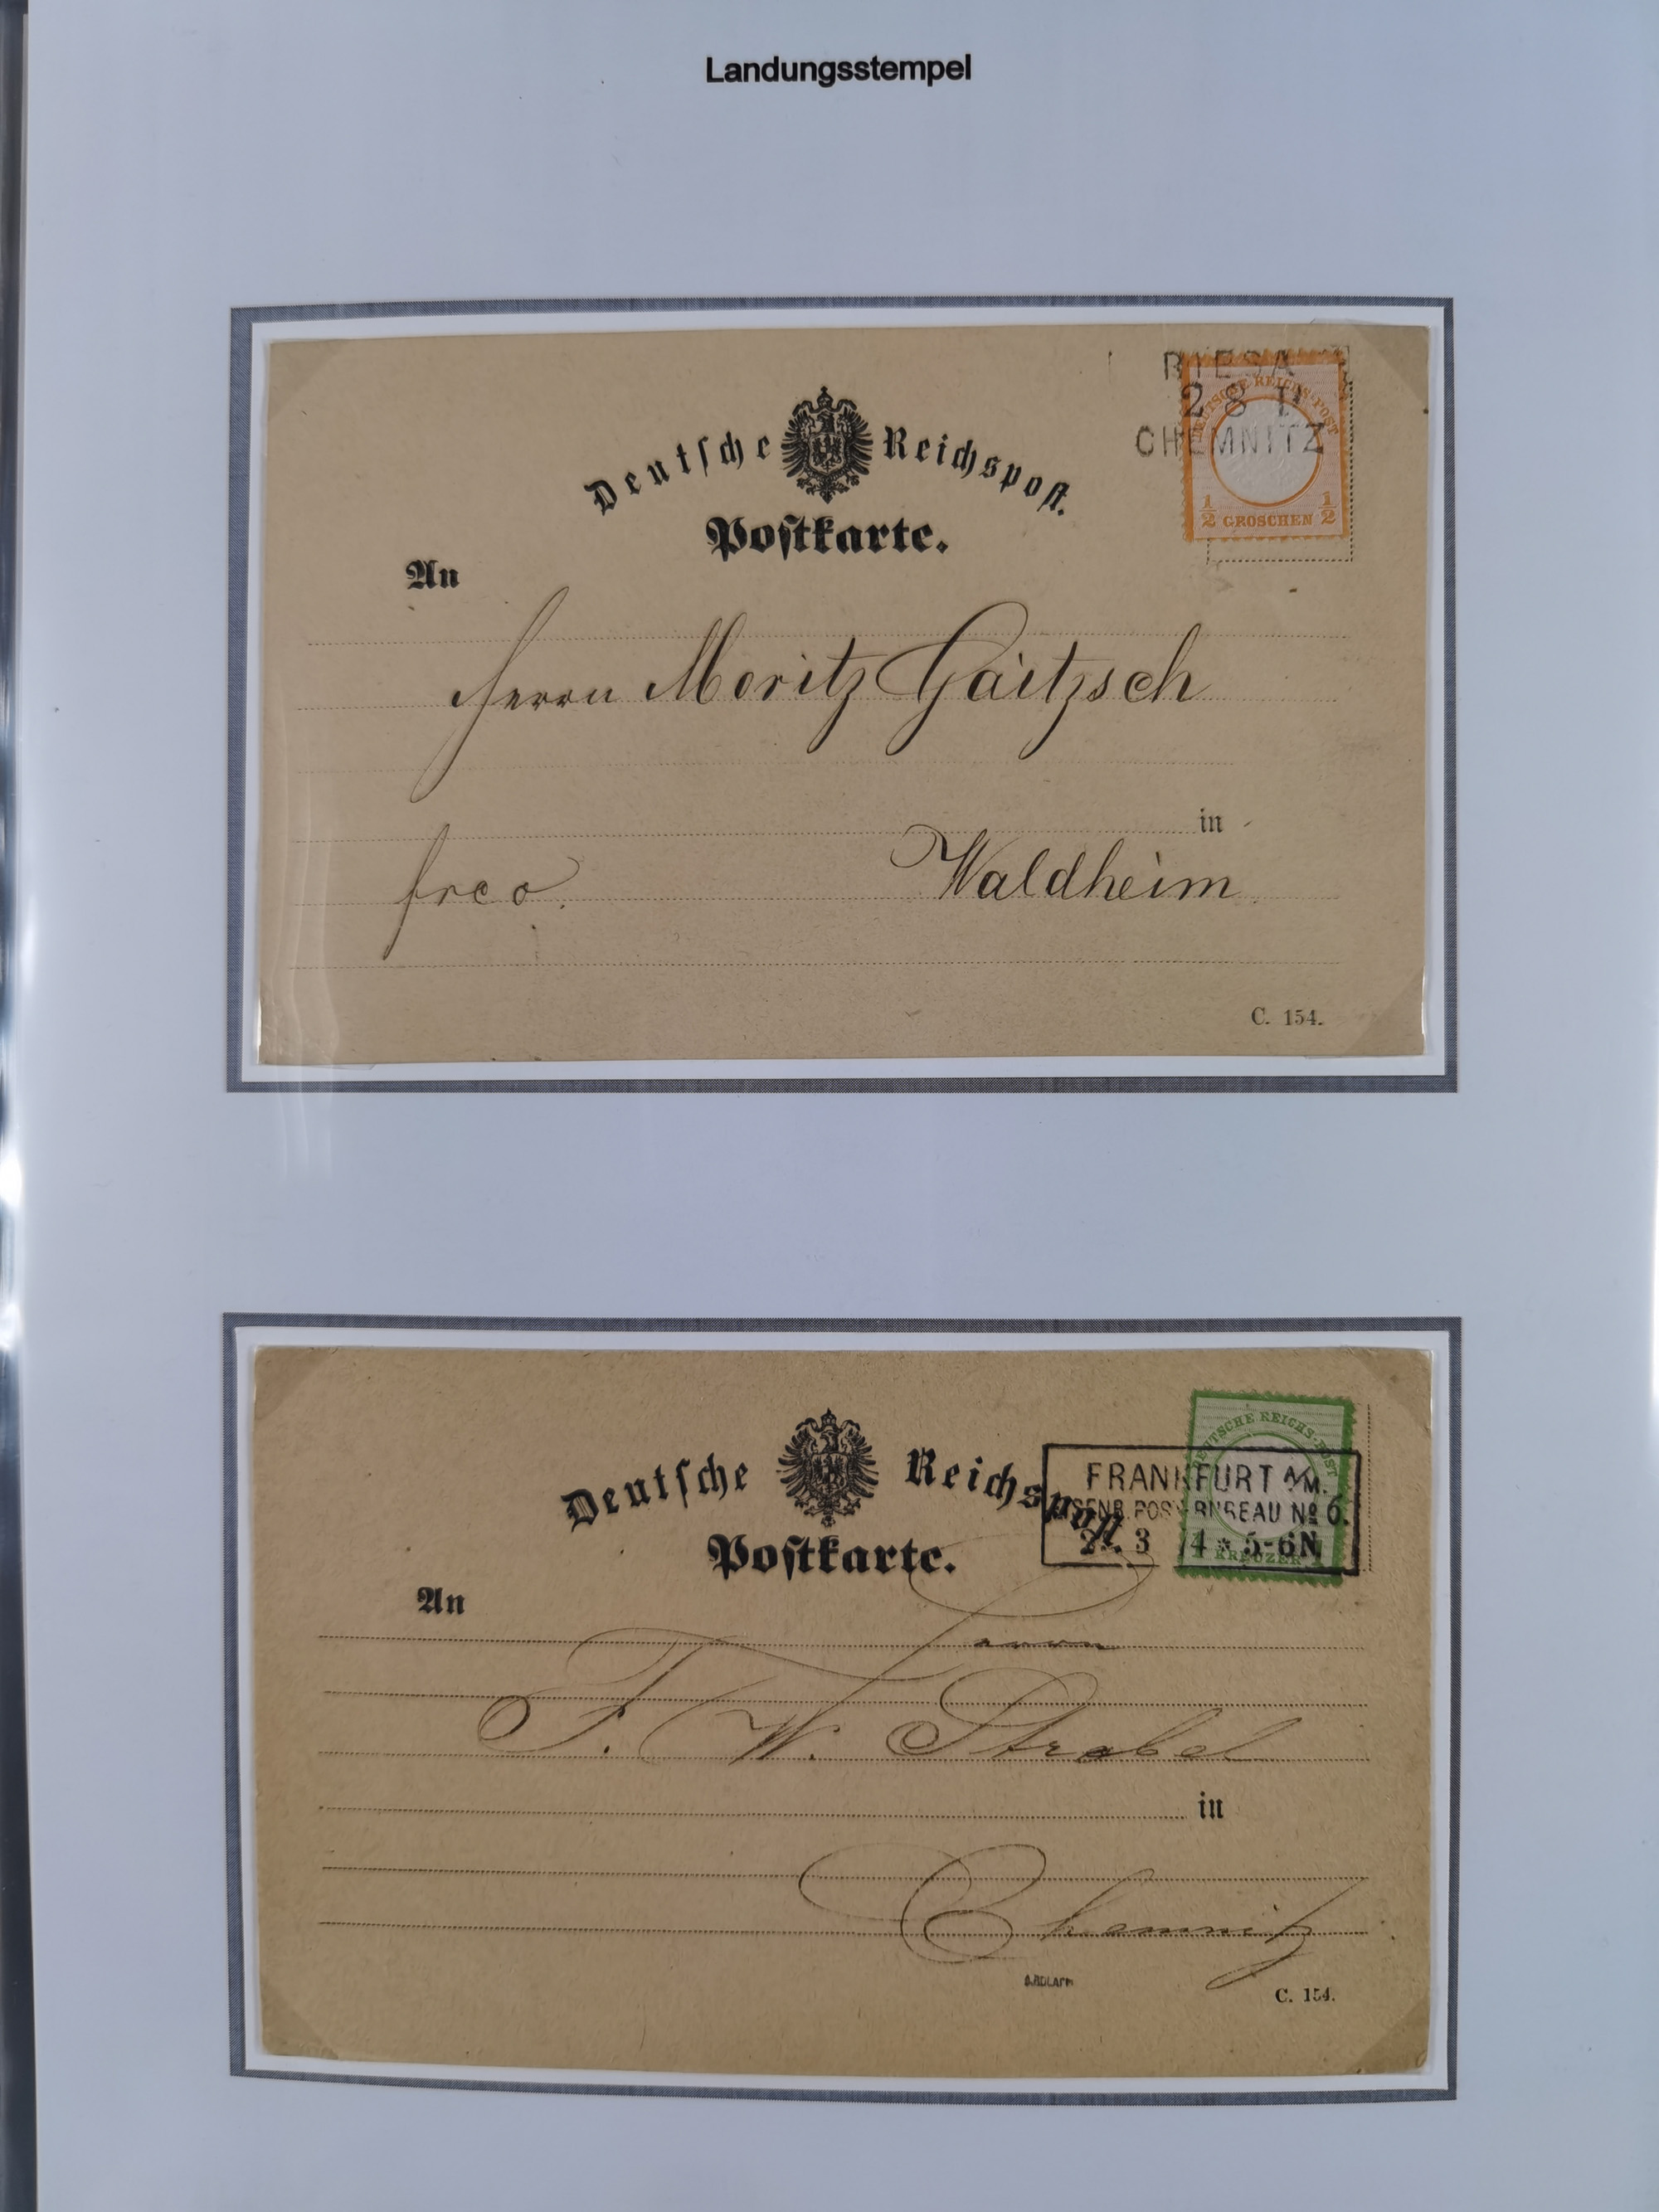 Landungsstempel
RIESA
28 II
CHEMNITZ
DEUTSCHE REICHS-POST
1/2 GROSCHEN 1/2
Deutsche Reichspost.
Postkarte.
An
Herrn Moritz Gäitzsch
in
freo. Waldheim
C. 154.
DEUTSCHE REICHS-POST
KREUZER
FRANKFURT A/M.
BUREAU No 6.
3 74 * 5-6N
Deutsche Reichspost
Postkarte.
An
Herrn
F. W. Strobel
in
Chemnitz
C. 154.